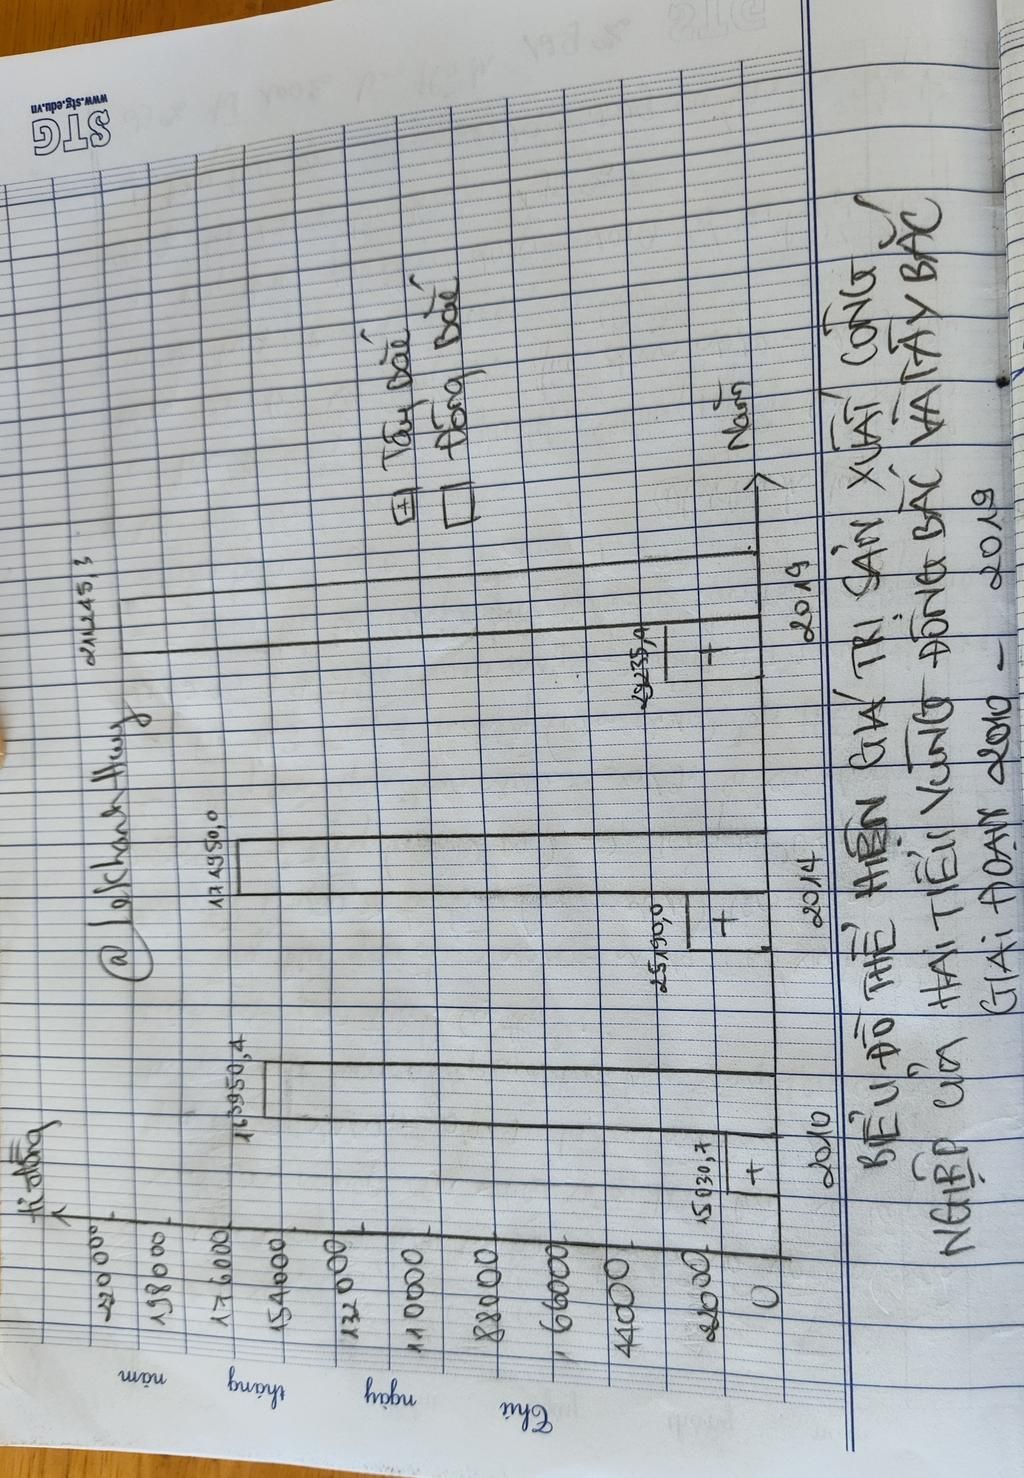 tỉ đồng
220000
198000
176000
154000
132000
110000
88000
66000
44000
22000
0
@lekhanhHuy
15030,7
163950,4
25190,0
174950,0
29235,4
211245,3
Tây Bắc
Đông Bắc
2010
2014
2019
Năm
BIỂU ĐỒ THỂ HIỆN GIÁ TRỊ SẢN XUẤT CÔNG
NGHIỆP CỦA HAI TIỂU VÙNG ĐÔNG BẮC VÀ TÂY BẮC
GIAI ĐOẠN 2010 - 2019
Thứ
ngày
tháng
năm
STG
www.stg.edu.vn